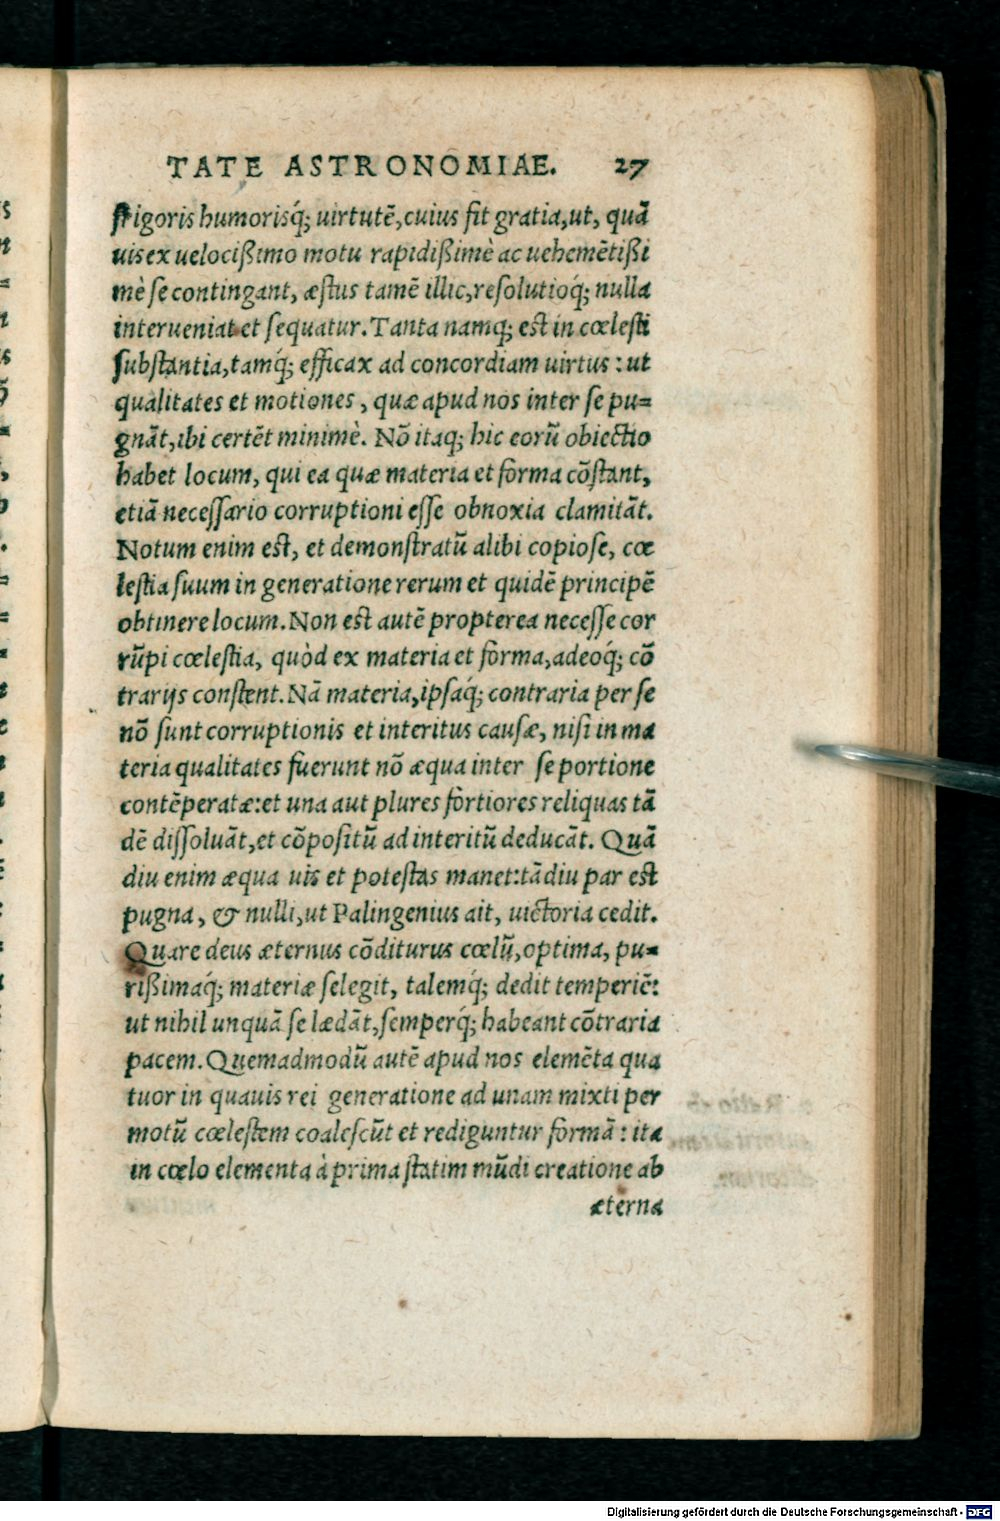 TATE ASTRONOMIAE. 27
frigoris humorisq́; uirtutẽ, cuius fit gratia, ut, quã
uis ex uelocißimo motu rapidißimè ac uehemẽtißi
mè se contingant, æstus tamẽ illic, resolutioq́; nulla
interueniat et sequatur. Tanta namq; est in cœlesti
substantia, tamq́; efficax ad concordiam uirtus: ut
qualitates et motiones, quæ apud nos inter se pu=
gnãt, ibi certẽt minimè. Nõ itaq; hic eorũ obiectio
habet locum, qui ea quæ materia et forma cõstant,
etiã necessario corruptioni esse obnoxia clamitãt.
Notum enim est, et demonstratũ alibi copiose, cœ
lestia suum in generatione rerum et quidẽ principẽ
obtinere locum. Non est autẽ propterea necesse cor
rũpi cœlestia, quòd ex materia et forma, adeoq́; cõ
trarijs constent. Nã materia, ipsaq́; contraria per se
nõ sunt corruptionis et interitus causæ, nisi in ma
teria qualitates fuerunt nõ æqua inter se portione
contẽperatæ: et una aut plures fortiores reliquas tã
dẽ dissoluãt, et cõpositũ ad interitũ deducãt. Quã
diu enim æqua uis et potestas manet: tãdiu par est
pugna, & nulli, ut Palingenius ait, uictoria cedit.
Quare deus æternus cõditurus cœlũ, optima, pu=
rißimaq́; materiæ selegit, talemq́; dedit temperiẽ:
ut nihil unquã se lædãt, semperq́; habeant cõtraria
pacem. Quemadmodũ autẽ apud nos elemẽta qua
tuor in quauis rei generatione ad unam mixti per
motũ cœlestem coalescũt et rediguntur formã: ita
in cœlo elementa à prima statim mũdi creatione ab
æterna
Digitalisierung gefördert durch die Deutsche Forschungsgemeinschaft - DFG